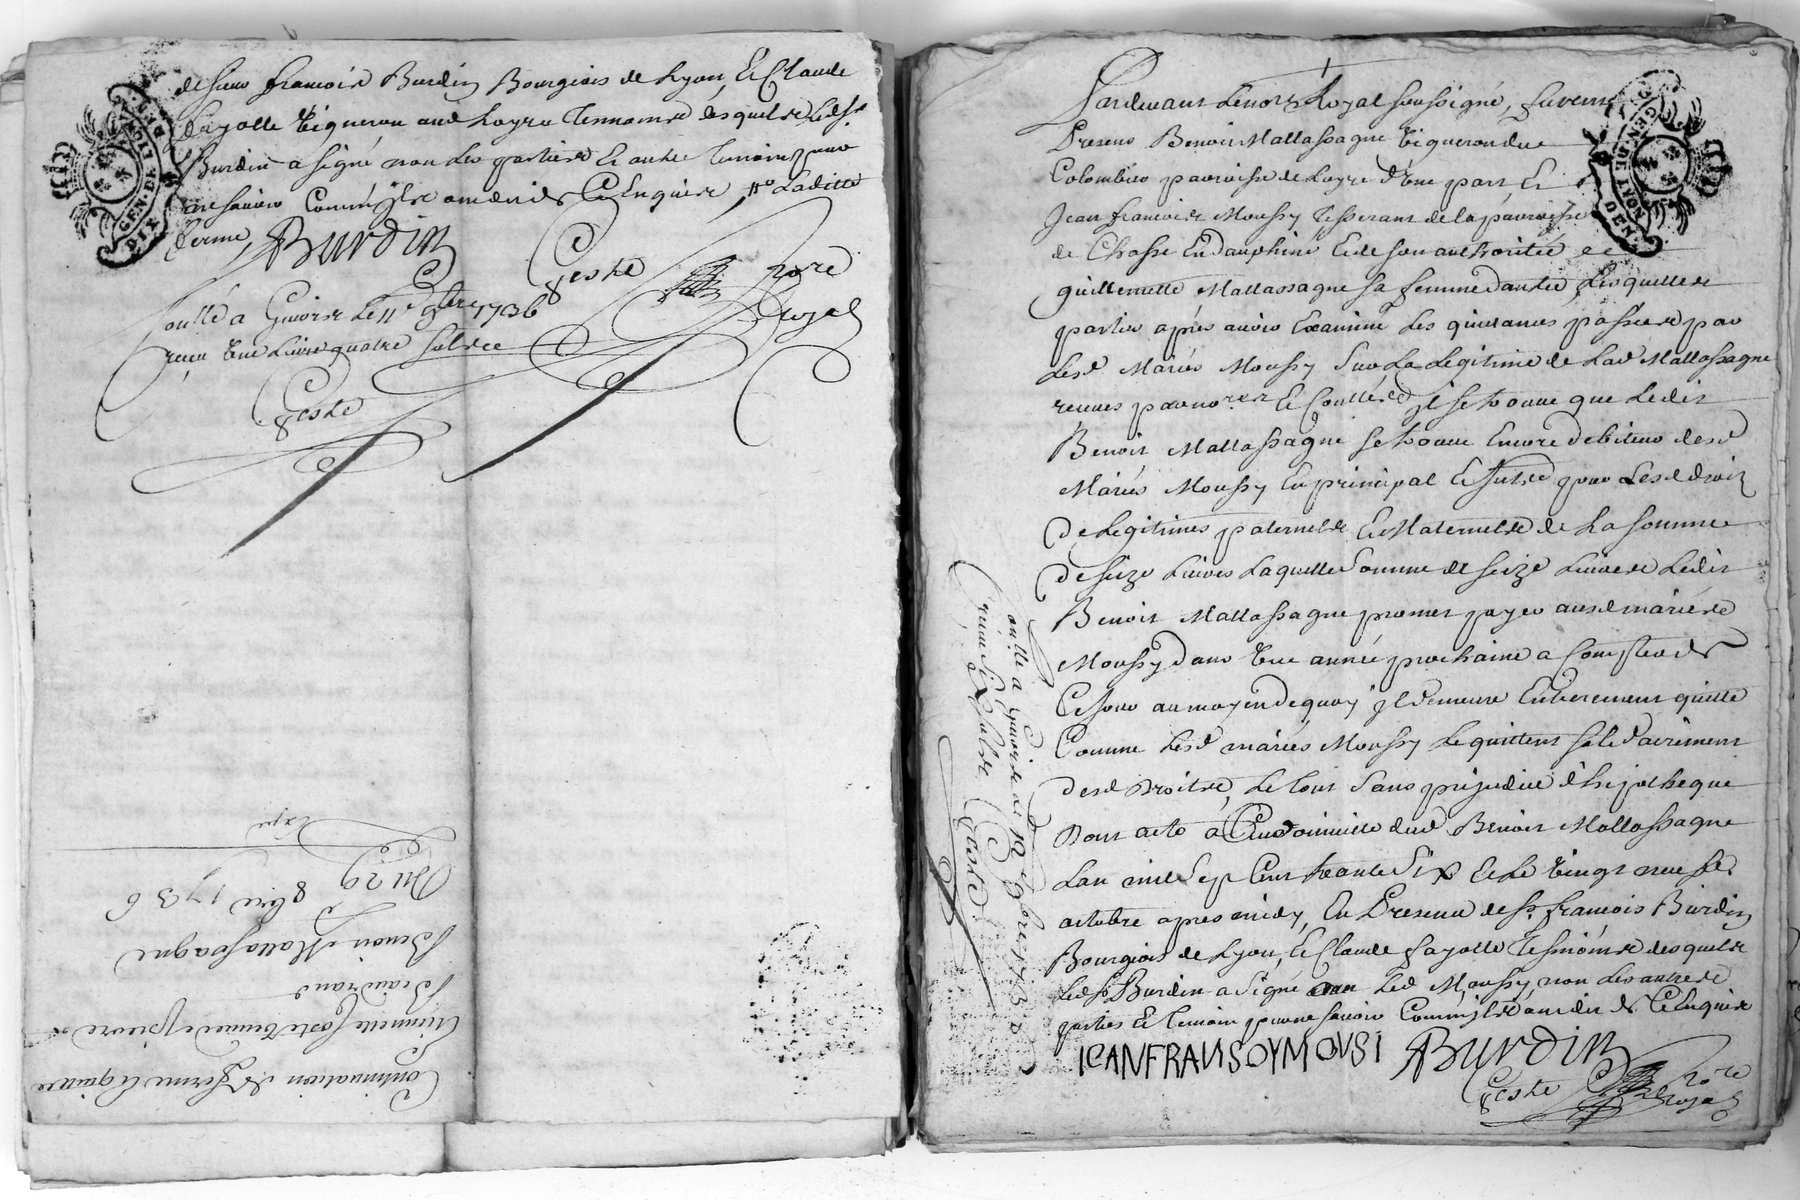 de sieur francois Burdin Bourgeois de Lyon, Et Claude
fayolle Vigneron aud Loyre Temoins desquels Led Sr
Burdin a signé non les parties Et autre temoin pour
ne savoir Comme ils ont dit de Ce Enquis, Laditte
ferme, Burdin
Coste nore
Royal
Conllé a Givors Le 11e 9bre 1736
reçu Une Livre quatre sols
Coste
Expé
Du 29 8bre 1736
Benoit Mallassagne
Beaudrand
Etiennette Coste veuve de pierre
Continuation de ferme Et quittce
GEN. DE LYON
Pardevant Le nore Royal soussigné, furent
Presens Benoit Mallassagne Vigneron du
Colombier parroisse de Loyre d'une part Et
Jean francois Moussy Tisserant de la parroisse
de Chasse En dauphiné Et de son authorité
guillemette Mallassagne sa femme d'autre, Lesquelles
parties après avoir Examiné Les quittances passées par
Lesd Mariés Moussy sur La Legitime de Lad Mallassagne
reçues par nore Et Conllées il se trouve que Ledit
Benoit Mallassagne se trouve Encore debiteur desd
Mariés Moussy En principal Et par Lesd droits
De Legitimes paternels Et Maternels de La somme
De seize Livres Laquelle somme de seize Livres Ledit
Benoit Mallassagne promet payer ausd mariés
Moussy dans Une année prochaine a Compter de
Ce jour au moyen de quoy il demeure Entierement quitte
Comme Lesd mariés Moussy Le quittent solidairement
Desd droits, Le tout sans prejudice d'hipotheque
Dont acte a Ce domicille dud Benoit Mallassagne
Lan mil Sept Cent trante Six Et Le Vingt neuf
octobre après midy, En Presence de Sr francois Burdin
Bourgeois de Lyon, Et Claude fayolle Temoins desquels
Led Sr Burdin a signé Led Moussy non Les autres
parties Et temoin pour ne savoir Comme ils ont dit de Ce Enquis
ICANFRANSOYMOUSI Burdin
Coste nore
Royal
Conllé a Givors Le 10 9bre 1736
reçu Six sols Coste
GEN. DE LYON